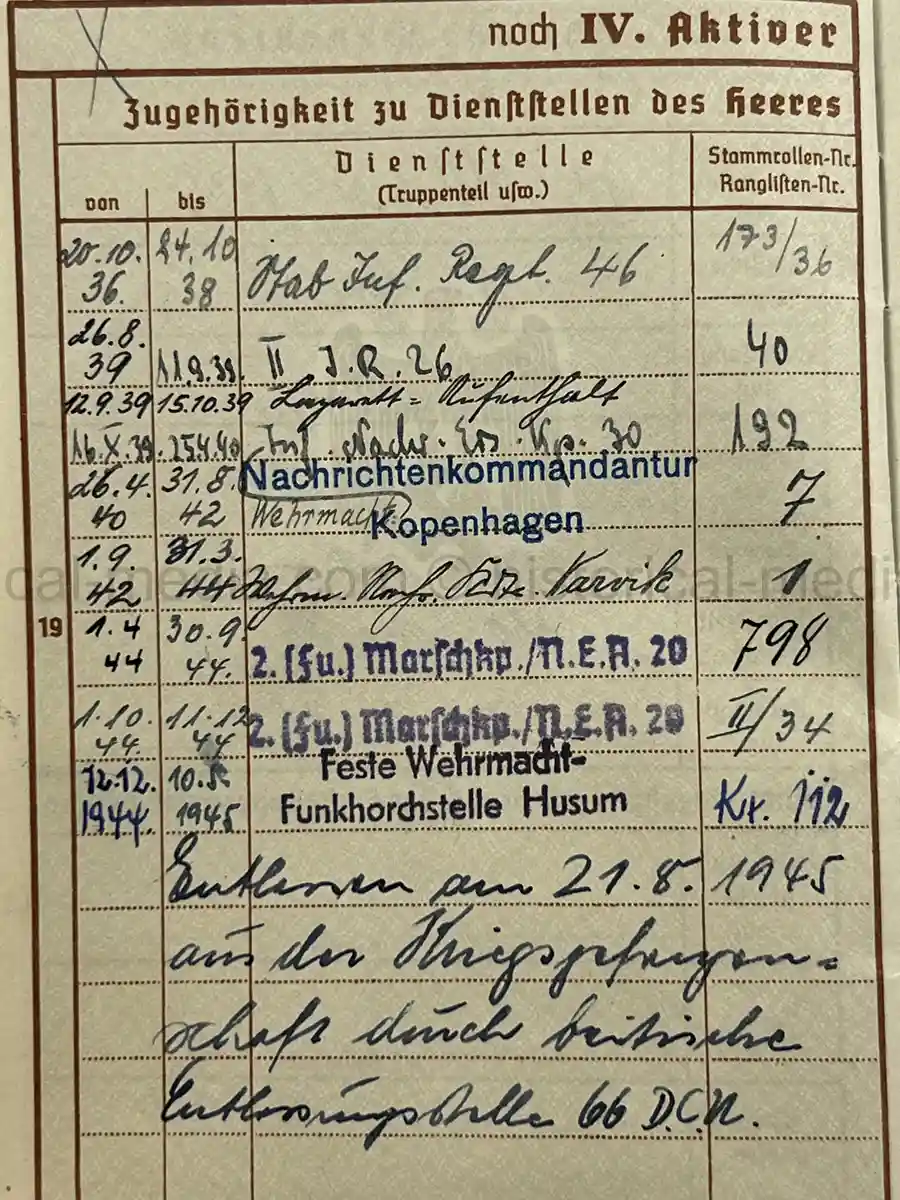 noch IV. Aktiver
Zugehörigkeit zu Dienststellen des Heeres
von bis Dienststelle (Truppenteil usw.) Stammrollen-Nr. Ranglisten-Nr.
20.10. 36. 24.10 38 Stab Inf. Regt. 46 173/36
26.8. 39 11.9.39. II J.R. 26 40
12.9.39 15.10.39 Lazarett= Aufenthalt
16.X.39. 25.4.40 Inf. Nachr. Ers. Kp. 30 192
26.4. 40 31.8. 42 Nachrichtenkommandantur
Wehrmacht Kopenhagen 7
1.9. 42 31.3. 44 Wehrm. Nachr. Narvik 1
19
1.4 44 30.9. 44. 2. (Fu.) Marschkp./N.E.A. 20 798
1.10. 44. 11.12 44 2. (Fu.) Marschkp./N.E.A. 20 II/34
12.12. 1944. 10.5. 1945 Feste Wehrmacht-
Funkhorchstelle Husum Kr. 112
Entlassen am 21.8. 1945
aus der Kriegsgefangen=
schaft durch britische
Entlassungsstelle 66 D.C.U.